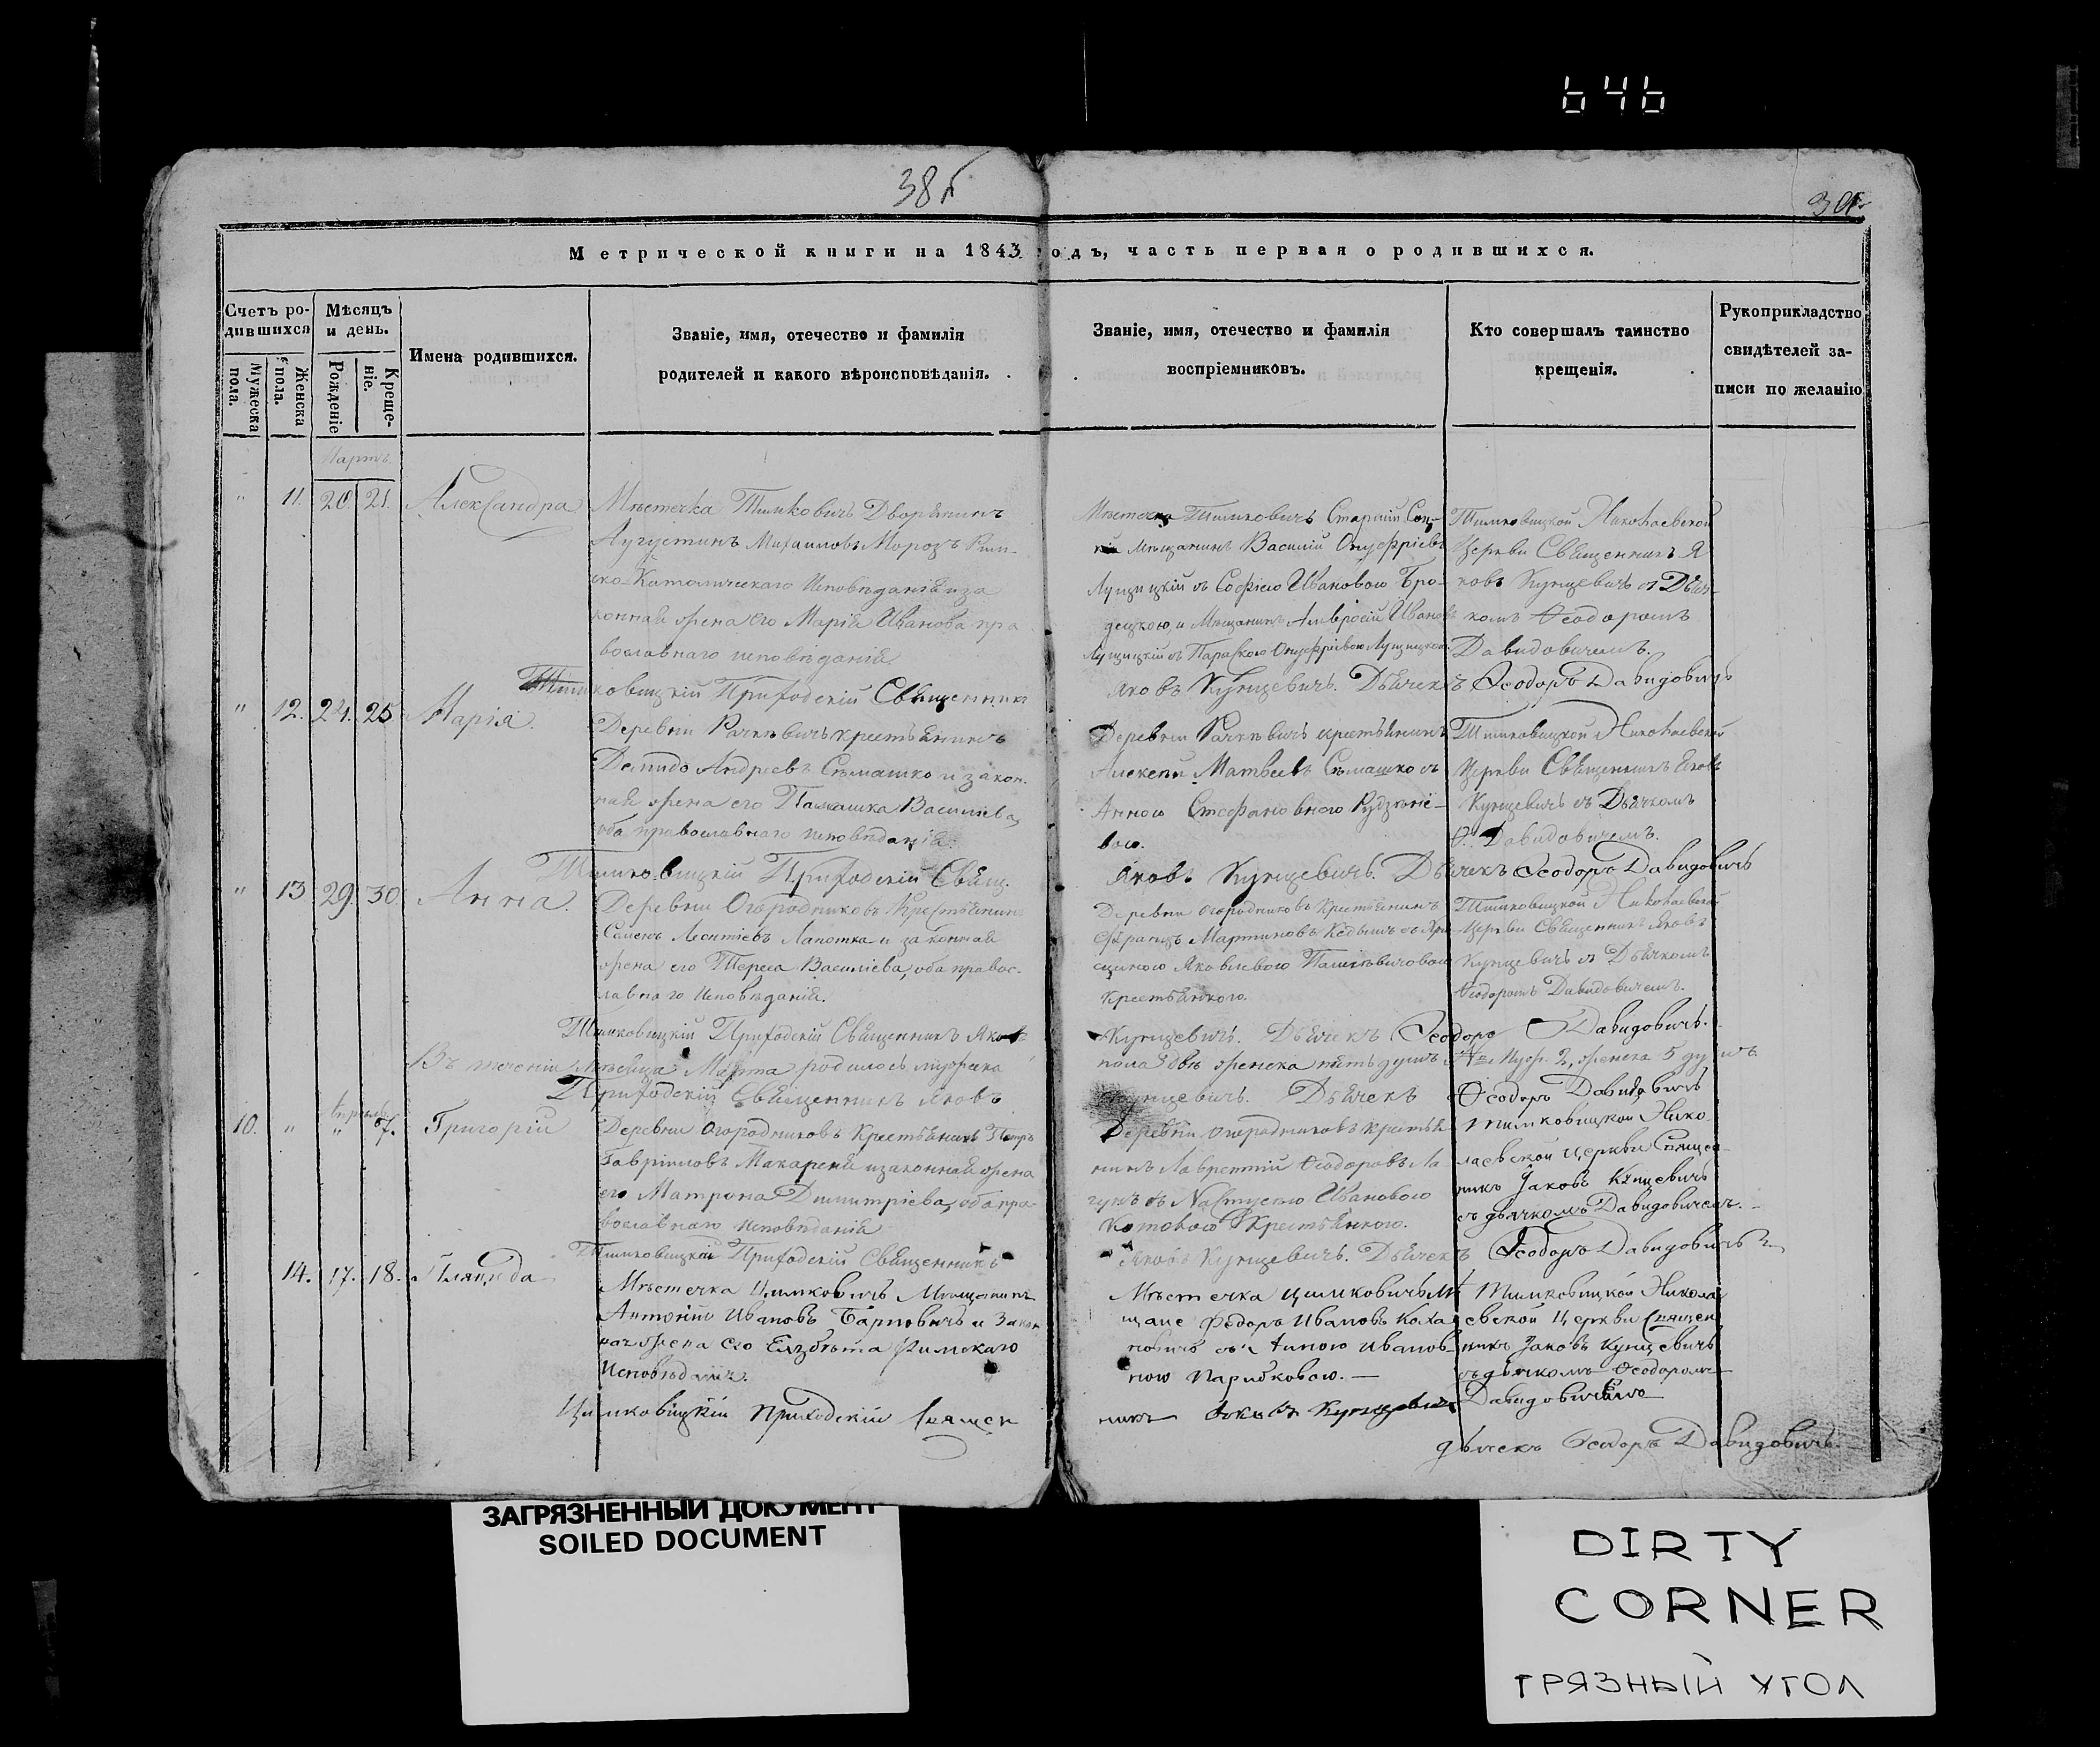 646
38б
39
Метрической книги на 1843 годъ, часть первая о родившихся.
Счетъ родившихся
Мужеска пола.
Женска пола.
Мѣсяцъ и день.
Рожденіе
Крещеніе.
Имена родившихся.
Званіе, имя, отечество и фамилія
родителей и какого вѣроисповѣданія.
Званіе, имя, отечество и фамилія
воспріемниковъ.
Кто совершалъ таинство
крещенія.
Рукоприкладство
свидѣтелей за-
писи по желанію
Мартъ.
" 11. 20. 21. Александра
Мѣстечка Тимковичъ Дворянинъ
Августинъ Михаиловъ Морозъ Рим-
ско-Католическаго Исповѣданія и за
конная жена его Марія Иванова пра
вославнаго исповѣданія.
Мѣстечка Тимковичъ Старшій
Мѣщанинъ Василій Онуфріевъ
Лущицкій съ Софіею Ивановою Бро-
децкою, и Мѣщанинъ Амвросій Ивановъ
Лущицкій съ Параскою Онуфріевою Лущицкою.
Тимковицкой Николаевской
Церкви Священникъ Я
ковъ Кунцевичъ съ Дьяч-
комъ Ѳеодоромъ
Давидовичемъ.
Тимковицкій Приходскій Священникъ Яковъ Кунцевичъ. Дьячекъ Ѳеодоръ Давидовичъ
" 12. 24. 25 Марія.
Деревни Рачкевичъ крестьянинъ
Демидъ Андреевъ Сымашко и закон.
ная жена его Палашка Васильева,
оба православнаго исповѣданія.
Деревни Рачкевичъ крестьянинъ
Алексей Матвеевъ Сымашко съ
Анною Стефановною
вою.
Тимковицкой Николаевской
Церкви Священникъ Яковъ
Кунцевичъ съ Дьячкомъ
Ѳ. Давидовичемъ.
Тимковицкій Приходскій Свящ. Яковъ Кунцевичъ. Дьячекъ Ѳеодоръ Давидовичъ
" 13 29. 30. Анна.
Деревни Огородниковъ Крестьянинъ
Семенъ Леонтіевъ Лапотка и законная
жена его Тереса Василіева, оба правос-
лавнаго исповѣданія.
Деревни Огородниковъ Крестьянинъ
Францъ Мартиновъ съ Хри
стиною Яковлевою
Крестьянкою.
Тимковицкой Николаевской
Церкви Священникъ Яковъ
Кунцевичъ съ Дьячкомъ
Ѳеодоромъ Давидовичемъ.
Тимковицкій Приходскій Священникъ Яковъ Кунцевичъ. Дьячекъ Ѳеодоръ Давидовичъ.
Въ теченіи Мѣсяца Марта родилось мужеска пола двѣ женска пять душъ Муж. 2, женска 5 душъ.
Приходскій Священникъ Яковъ Кунцевичъ. Дьячекъ Ѳеодоръ Давидовичъ
Апрѣль.
10. " " 7. Григорій
Деревни Огородниковъ Крестьянинъ Петръ
Гавріиловъ Макареня и законная жена
его Матрона Димитріева, оба пра-
вославнаго исповѣданія
Деревни Огородниковъ крестья
нинъ Лаврентій Ѳеодоровъ Ла
гунъ съ Настусею Ивановою
Котовою Крестьянкою.
Тимковицкой Нико
лаевской Церкви Священ
никъ Іаковъ Кунцевичъ
съ дьячкомъ Давидовичемъ.
Тимковицкій Приходскій Священникъ Яковъ Кунцевичъ. Дьячекъ Ѳеодоръ Давидовичъ
14. 17. 18. Пляцида
Мѣстечка Цимковичъ Мещанинъ
Антоній Ивановъ и Закон
ная жена его Елзбѣта Римскаго
Исповѣданія.
Мѣстечка Цимковичъ Мѣ
щане Ѳедоръ Ивановъ Коха
новичъ съ Анною Иванов-
ною Паришковою.
Тимковицкой Никола
евской Церкви Священ
никъ Іаковъ Кунцевичъ
съ дьячкомъ Ѳеодоромъ
Давидовичемъ
Цимковицкій Приходскій Священникъ Іаковъ Кунцевичъ
дьячекъ Ѳеодоръ Давидовичъ.
ЗАГРЯЗНЕННЫЙ ДОКУМЕНТ
SOILED DOCUMENT
DIRTY
CORNER
ГРЯЗНЫЙ УГОЛ